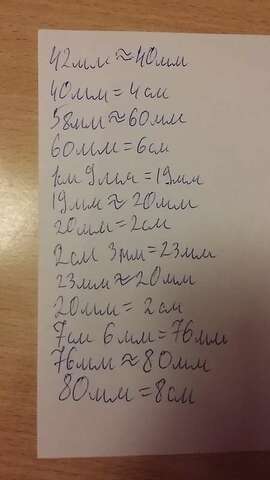 42мм ≈ 40мм
40мм = 4см
58мм ≈ 60мм
60мм = 6см
1км 9мм = 19мм
19мм ≈ 20мм
20мм = 2см
2см 3мм = 23мм
23мм ≈ 20мм
20мм = 2см
7см 6мм = 76мм
76мм ≈ 80мм
80мм = 8см